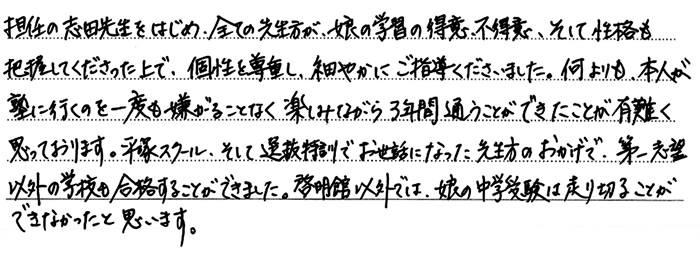 担任の志田先生をはじめ、全ての先生方が、娘の学習の得意、不得意、そして性格も
把握してくださった上で、個性を尊重し、細やかにご指導くださいました。何よりも、本人が
塾に行くのを一度も嫌がることなく楽しみながら3年間通うことができたことが有難く
思っております。平塚スクール、そして選抜特訓でお世話になった先生方のおかげで、第一志望
以外の学校も合格することができました。啓明館以外では、娘の中学受験は走り切ることが
できなかったと思います。